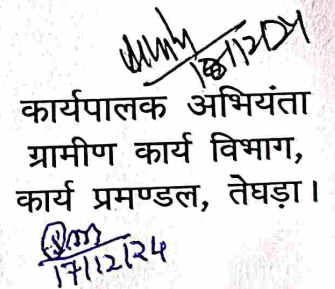 कार्यपालक अभियंता
ग्रामीण कार्य विभाग,
कार्य प्रमण्डल, तेघड़ा।
17/12/24